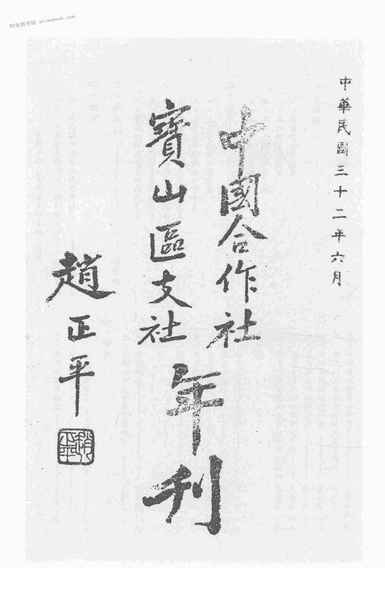 中華民國三十二年六月
中國合作社
寶山區支社
年刊
趙正平